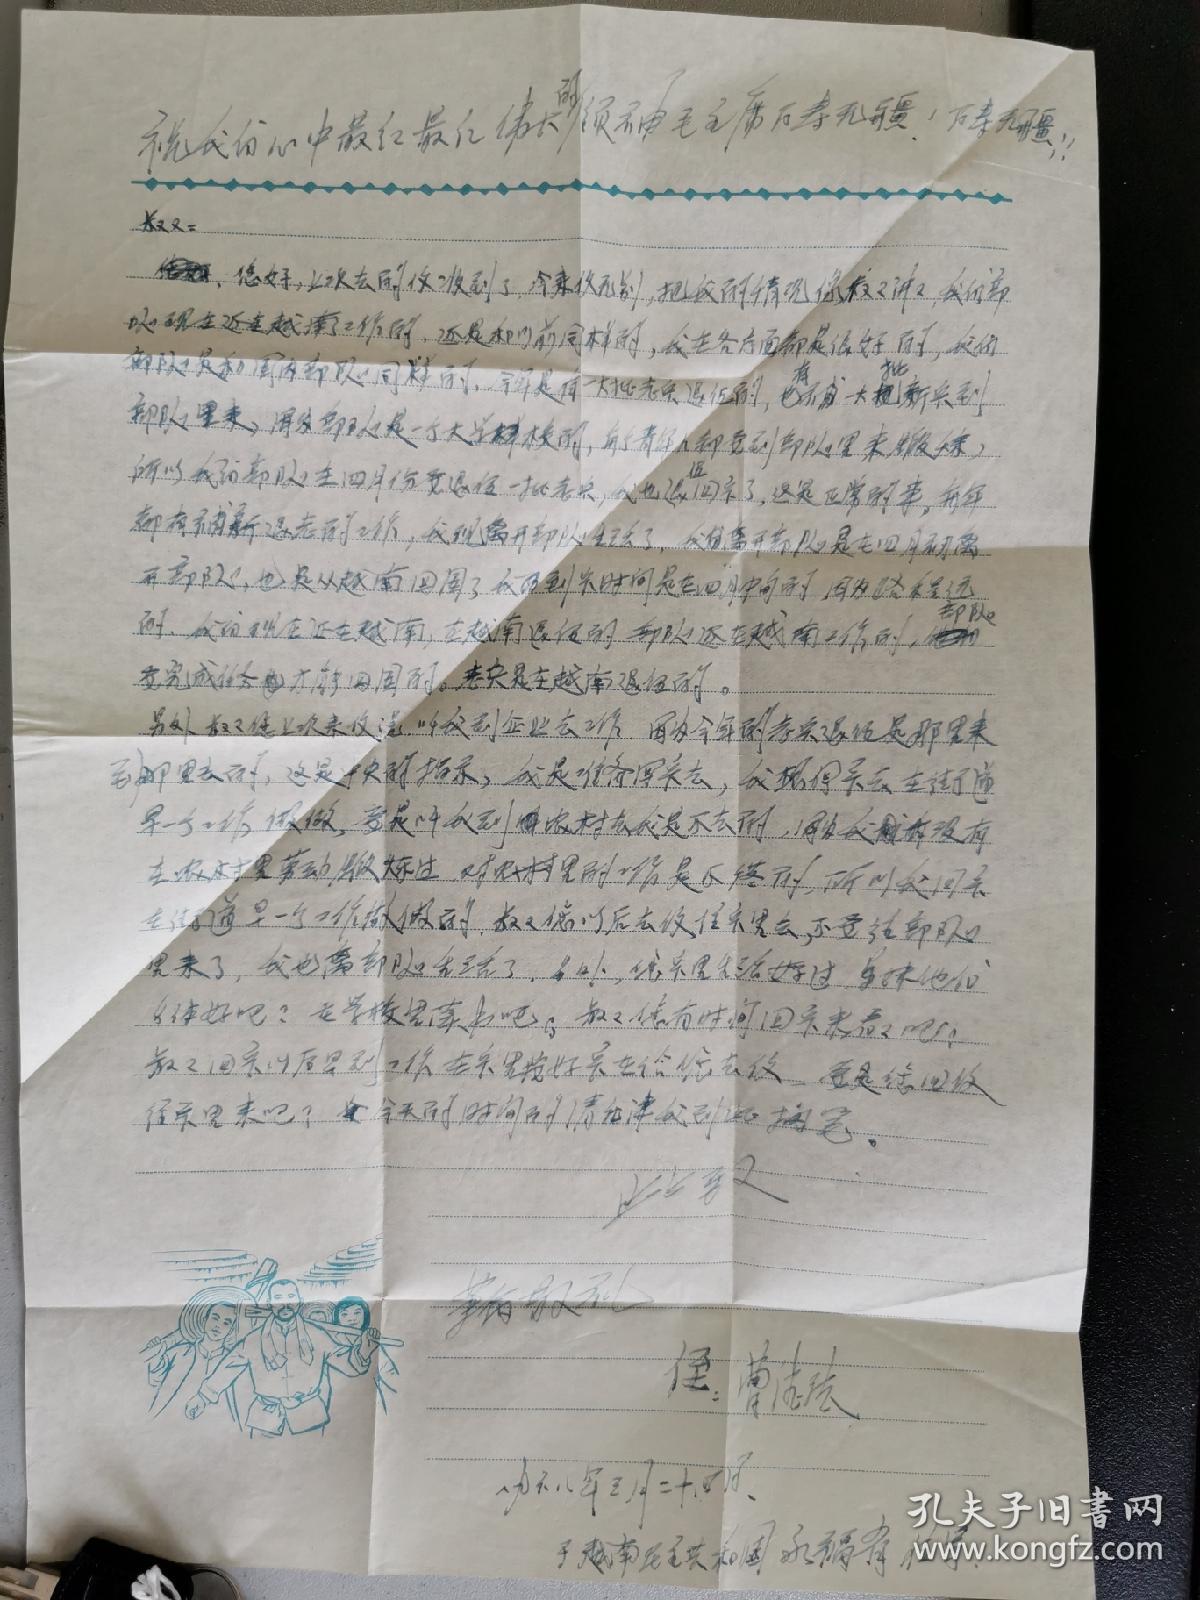 祝我们心中最红最红伟大的领袖毛主席万寿无疆！万寿无疆！！
叔叔：
您好，上次去的信收到了，今来信无别，把我的情况像叔叔讲讲，我们部
队现在还在越南工作的，还是和以前同样的，我在各方面都是信好的，我们
部队是和国内部队同样的，今年是有一大批老兵退伍的，也有补一大批新兵到
部队里来，因为部队是一个大学校的，每个青年人都要到部队里来锻炼，
所以我们部队在四月份要退伍一批老兵，我也退伍回家了，这是正常的事，每年
都有补新退老的工作，我现离开部队生活了，我离开部队是在四月初离
开部队，也是从越南回国了我回到家时间是在四月中旬的，因为路程远
的，我们现在还在越南，在越南退伍的，部队还在越南工作的，部队
要完成任务才能回国的。老兵是在越南退伍的。
另外叔叔您上次来信说，叫我到企业去工作，因为今年的老兵退伍是那里来
到那里去的，这是中央的指示，我是准备回家去，我想回家去在街道
早一个工作做做，要是叫我到农村去我是不去的，因为我没有
在农村里劳动锻炼过，对农村里的工作是不熟的，所以我回家
在街道早一个工作做做的，叔叔您以后去信往家里去，不要往部队
里来了，我也离部队生活了，另外，您家里生活好过，弟妹他们
身体好吧？在学校里读书吧，叔叔您有时间回家来看看吧！
叔叔回家以后早到工作在家里安好家在给您去信，要是您回信
往家里来吧？今天的时间的请允许我到此搁笔。
此致
革命敬礼
侄：曹法
一九六八年三月二十四日
于越南民主共和国永福省
孔夫子旧书网
www.kongfz.com